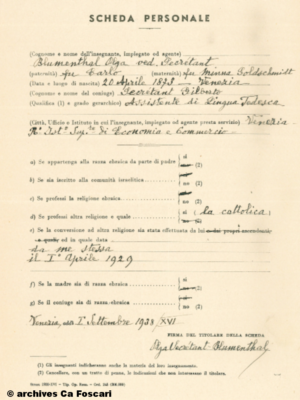 SCHEDA PERSONALE
(Cognome e nome dell'insegnante, impiegato od agente)
Blumenthal Olga ved. Secrétant
(paternità) fu Carlo (maternità) fu Minna Goldschmidt
(Data e luogo di nascita) 20 Aprile 1873 - Venezia
(Cognome e nome del coniuge) Secrétant Gilberto
(Qualifica (1) e grado gerarchico) Assistente di lingua Tedesca
(Città, Ufficio e Istituto in cui l'insegnante, impiegato od agente presta servizio) Venezia
R° Ist° Sup. di Economia e Commercio
a) Se appartenga alla razza ebraica da parte di padre sì no (2)
b) Se sia iscritto alla comunità israelitica sì no (2)
c) Se professi la religione ebraica sì no (2)
d) Se professi altra religione e quale sì no (2) (la cattolica)
e) Se la conversione ad altra religione sia stata effettuata da
ed in quale data
da me stessa
il 1° Aprile 1929
f) Se la madre sia di razza ebraica sì no (2)
g) Se il coniuge sia di razza ebraica sì no (2)
Venezia, 1° Settembre 1938 XVI
FIRMA DEL TITOLARE DELLA SCHEDA
Olga Secrétant Blumenthal
(1) Gli insegnanti indicheranno anche la materia del loro insegnamento.
(2) Cancellare, con un tratto di penna, le indicazioni che non interessano il titolare.
© archives Ca Foscari